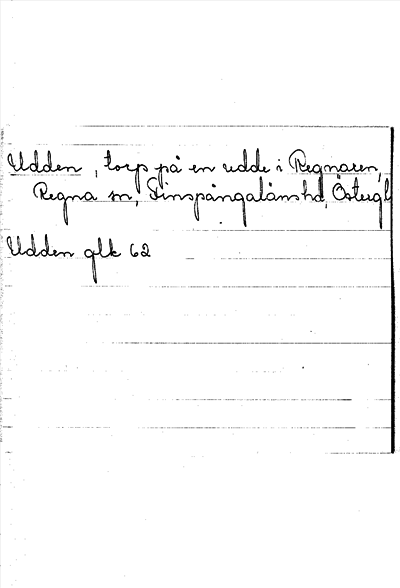 Udden, torp på en udde i Regnaren,
Regna sn, Finspångalänshd, Östergl
Udden glk 62